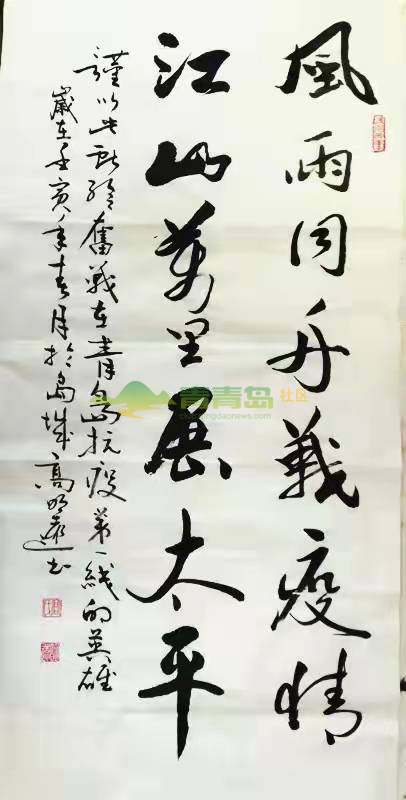 風雨同舟戰疫情
江山萬里展太平
謹以此獻给奮戰在青島抗疫第一线的英雄
歲在壬寅年春月於島城高明遠書
青青岛社区
qingdaonews.com